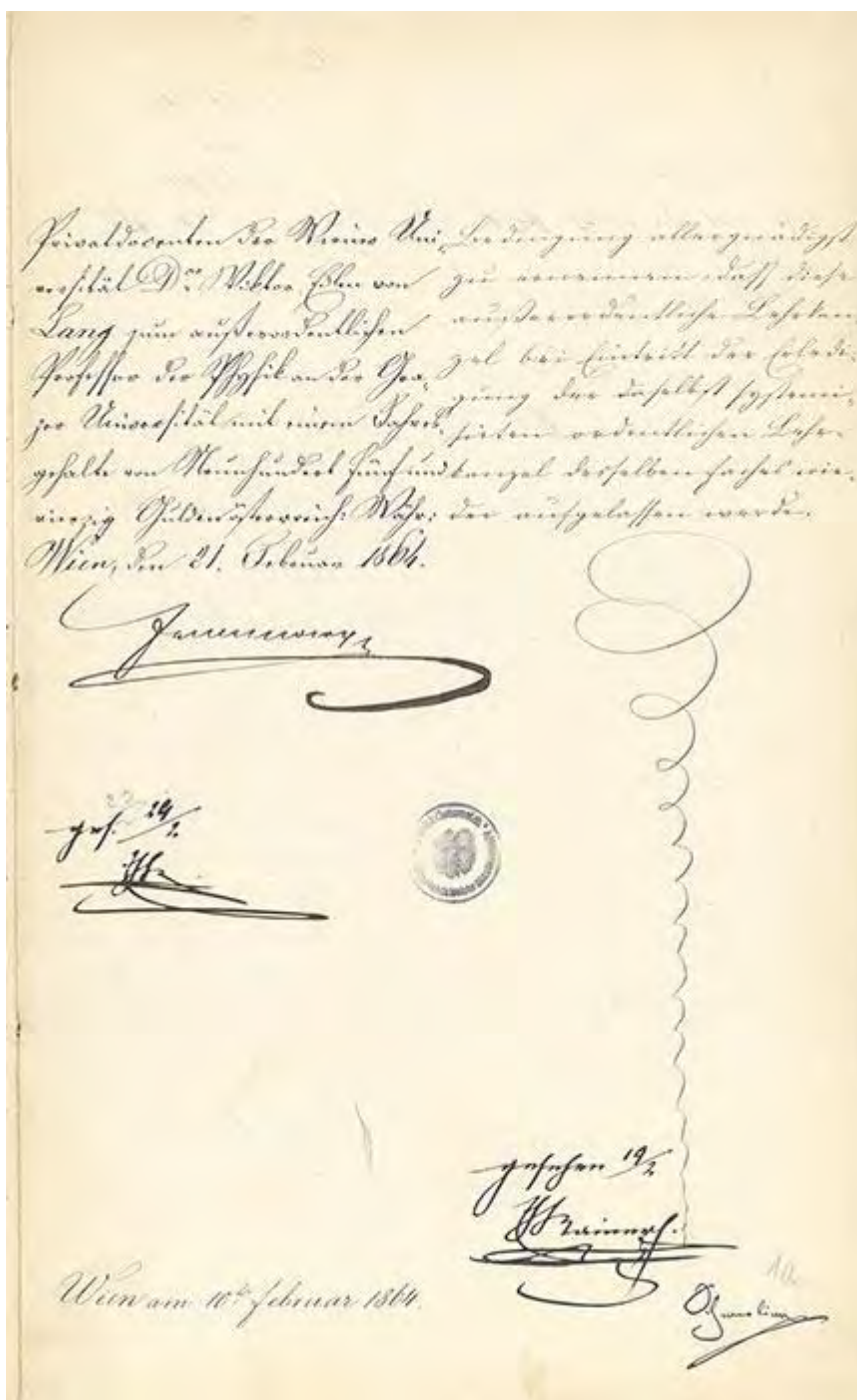 Privatdocenten der Wiener Uni-
versität Dr. Viktor Edlen von
Lang zum außerordentlichen
Professor der Physik an der Gra-
zer Universität mit einem Jahres-
gehalte von Neunhundert fünf und
vierzig Gulden österreich: Währ:
Wien, den 21. Februar 1864.
gef. 24/2
Bedingung allergnädigst
zu ernennen, daß diese
außerordentliche Lehrkan-
zel bei Eintritt der Erledi-
gung der daselbst systemi-
sirten ordentlichen Lehr-
kanzel desselben Faches wie-
der aufgelassen werde.
gesehen 19/2
Wien am 10t. Februar 1864.